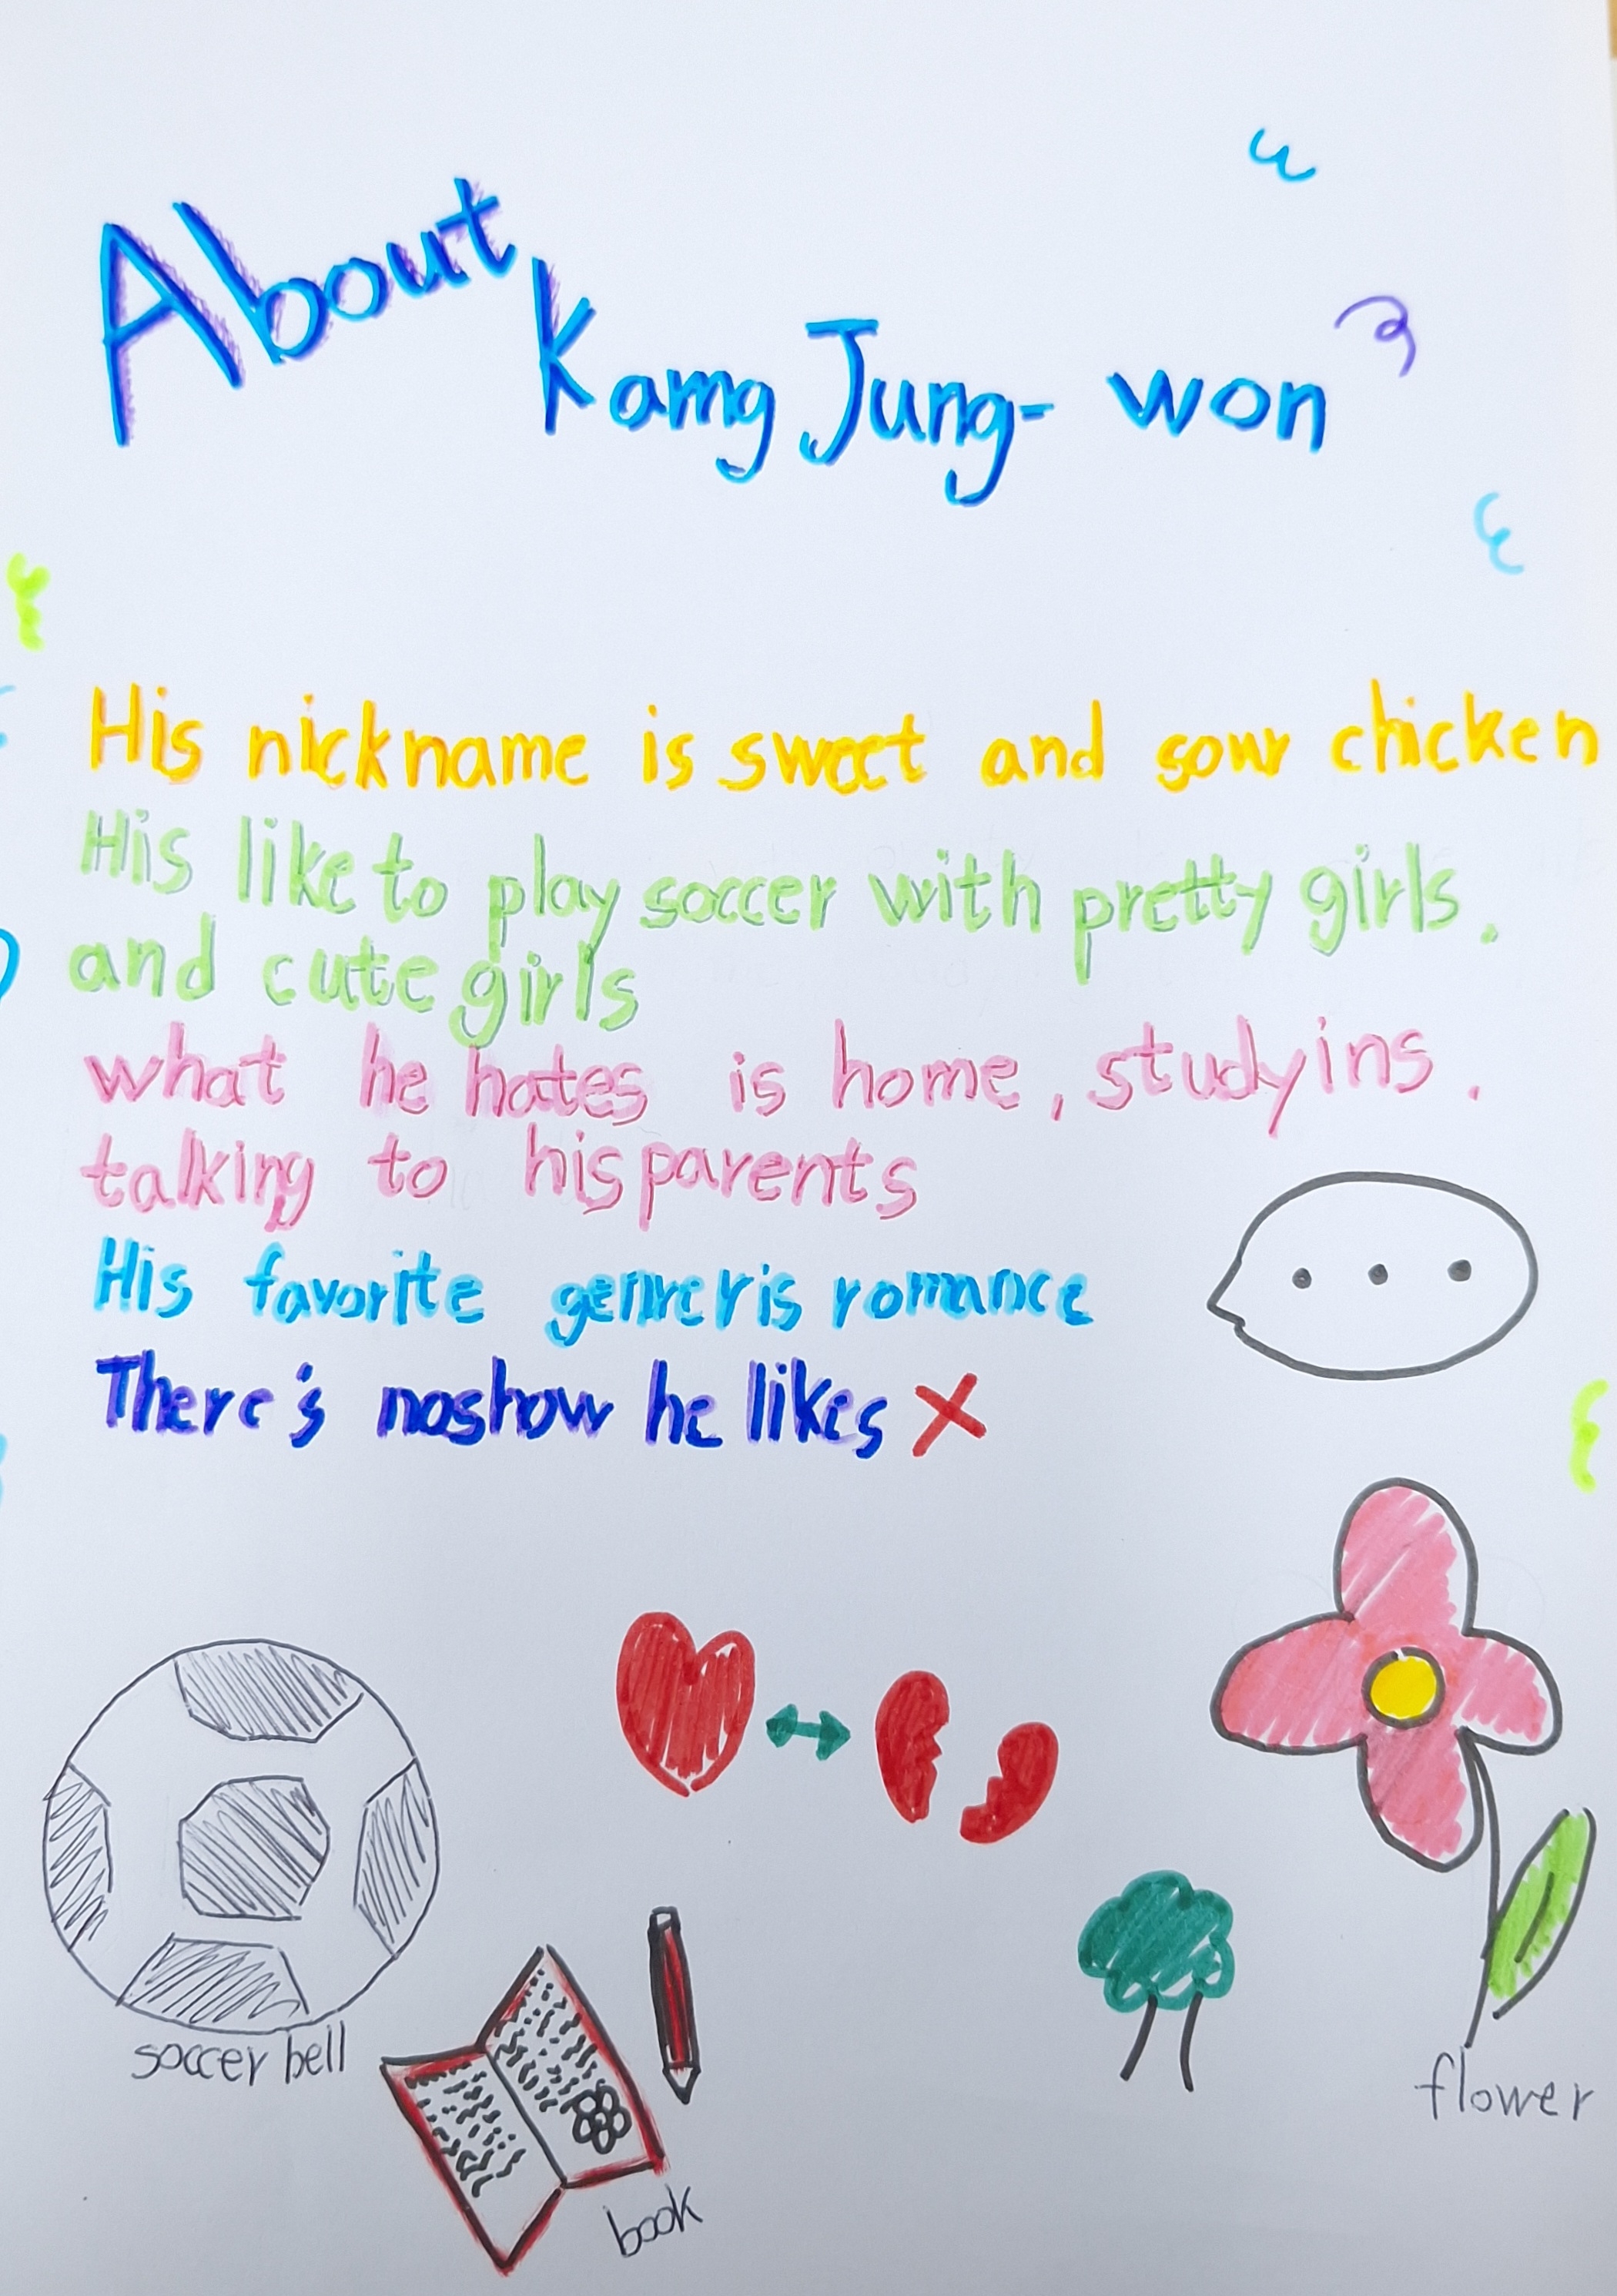 About
Kamg Jung-won
His nickname is sweet and sour chicken
His like to play soccer with pretty girls.
and cute girls
what he hates is home, studyins.
talking to his parents
His favorite is romance
There's noshow he likes X
soccer bell
book
flower